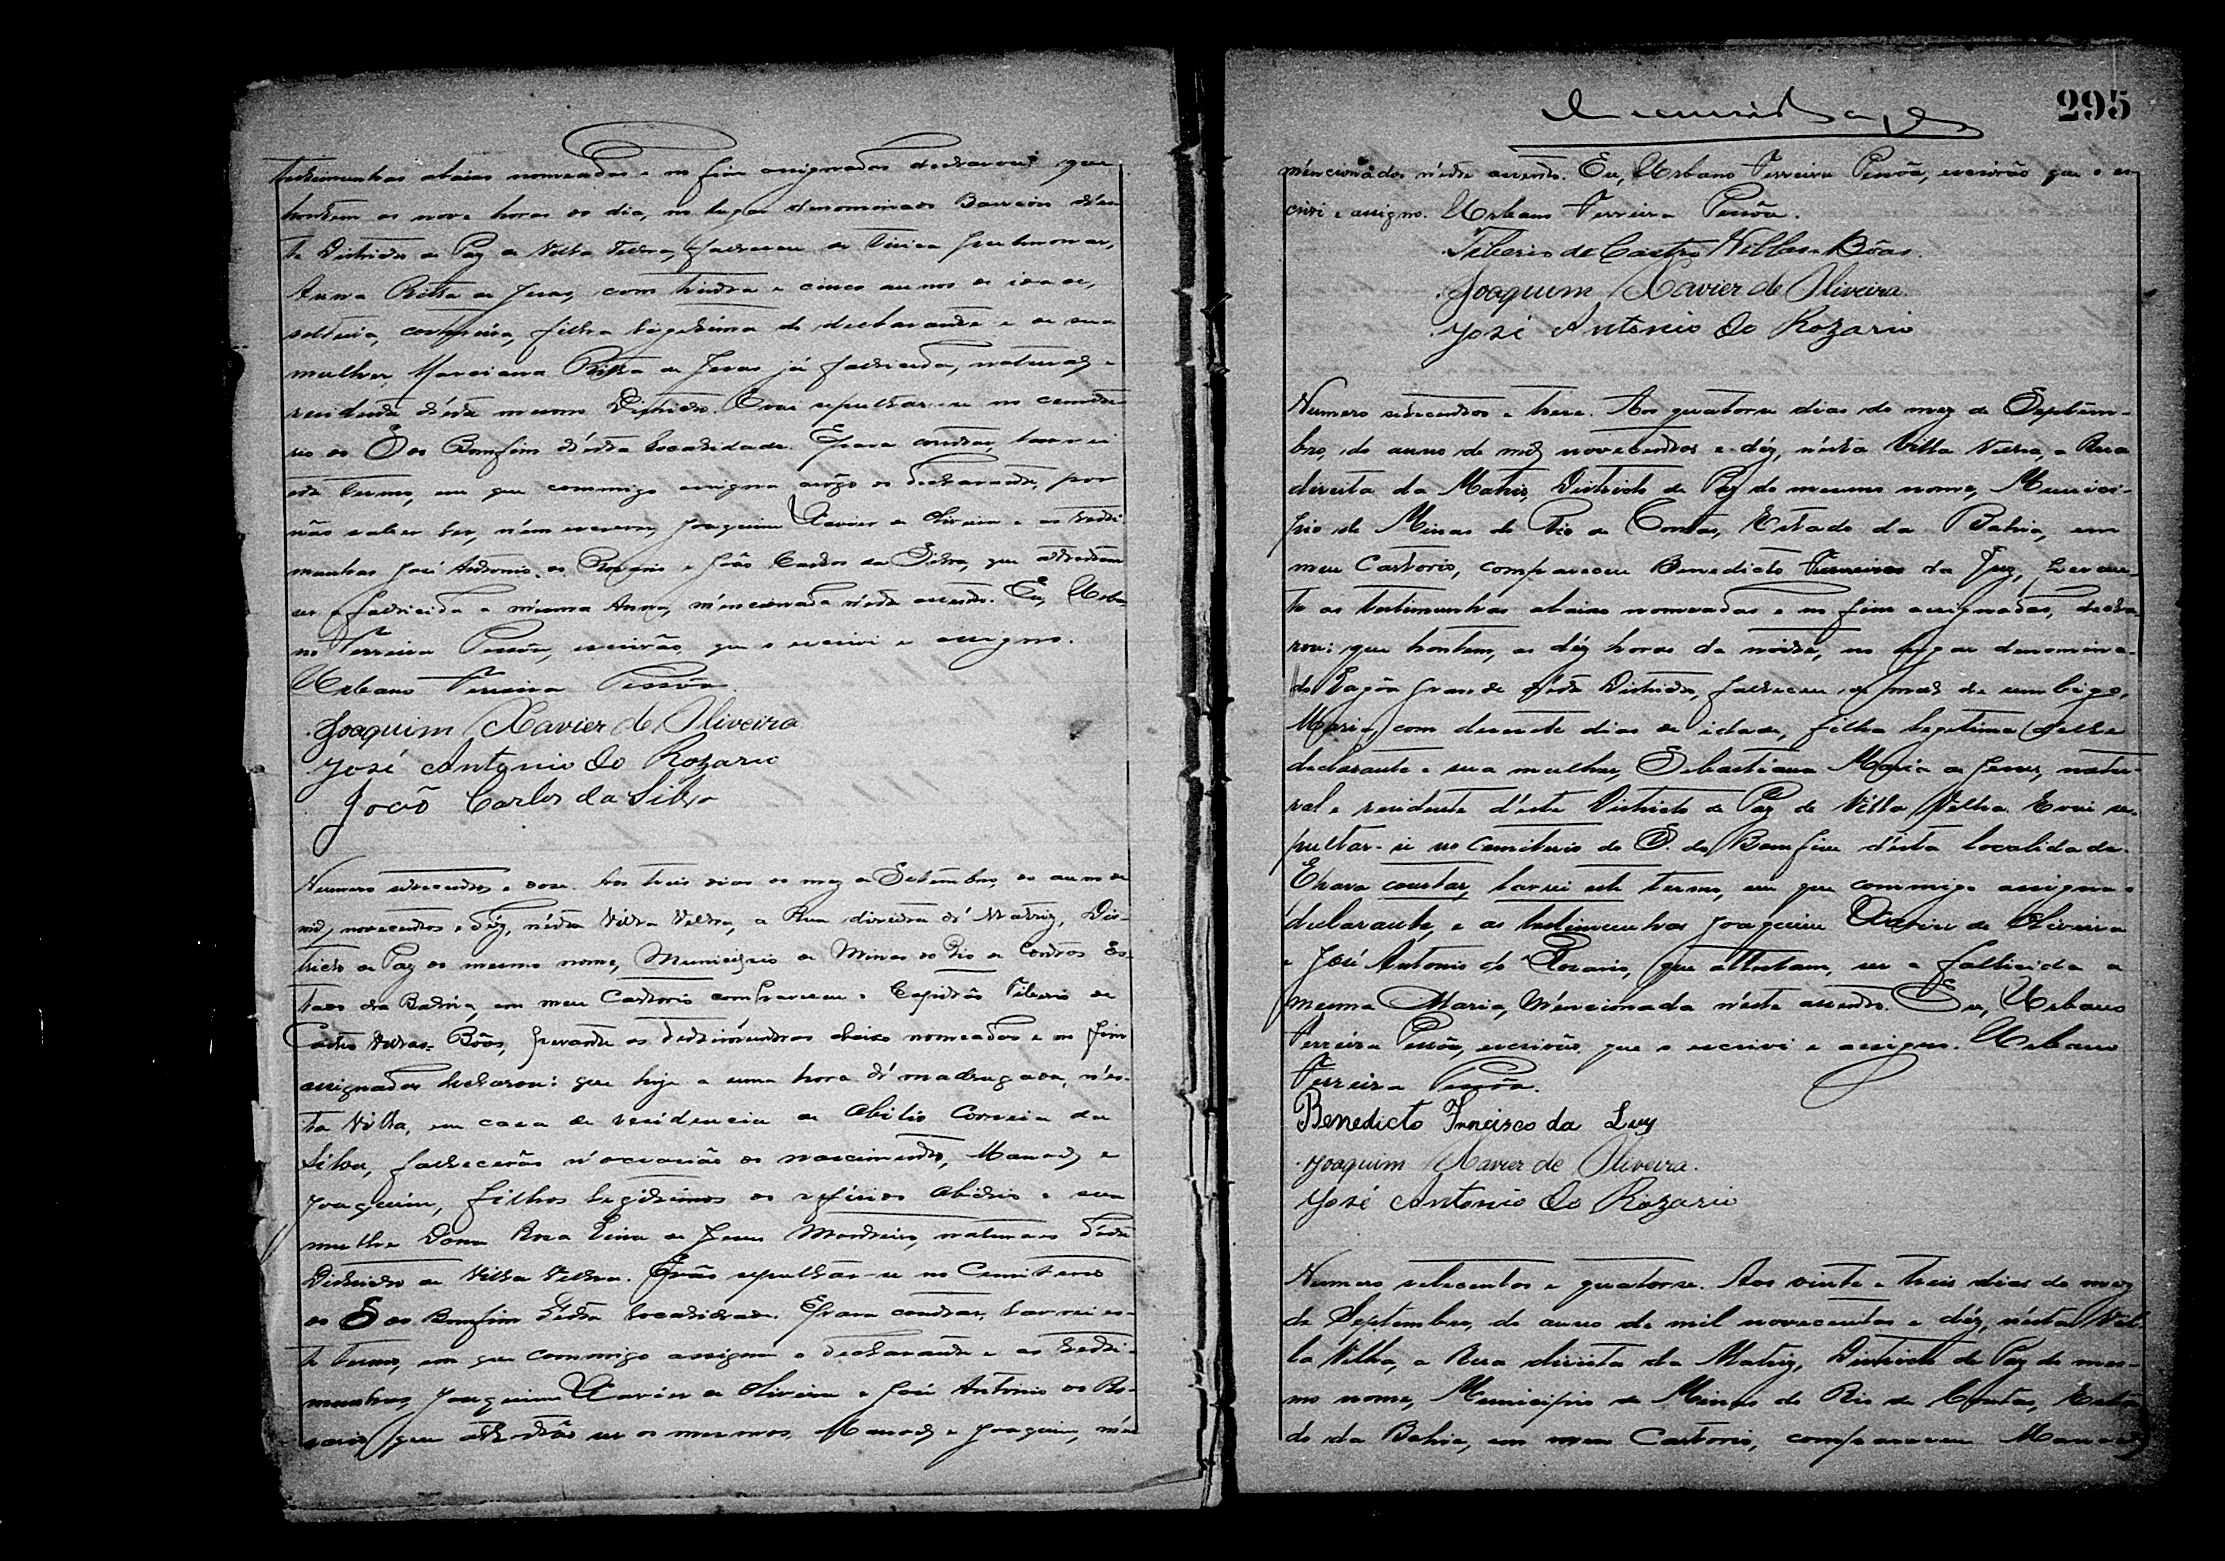 testemunhas abaixo nomeadas e no fim assignadas declarou: que
hontem as nove horas do dia, no lugar denominado Barreiro d'es
te Districto de Paz de Villa Velha, falleceu de tisica pulmonar,
Anna Ritta de Jesus, com trinta e cinco annos de idade,
solteira, costureira, filha legitima do declarante e de sua
mulher Marciana Ritta de Jesus já fallecida, natural e
residente d'este mesmo Districto. E vai sepultar-se no cemite
rio do S do Bomfim d'esta localidade. E para constar, lavrei
este termo, em que commigo assigna arôgo do declarante, por
não saber ler, nem escrever, Joaquim Xavier de Oliveira e as teste
munhas José Antonio do Rozario e João Carlos da Silva, que attestam
ser a fallecida a mesma Anna, mencionada n'este assento. Eu, Urba
no Ferreira Pessôa, escrivão, que o escrevi e assigno.
Urbano Ferreira Pessôa
Joaquim Xavier de Oliveira
José Antonio do Rozario
João Carlos da Silva
Numero setecentos e dose. Aos tres dias do mez de Setembro, do anno de
mil novecentos e déz, n'esta Villa Velha, a Rua direita da Matriz, Dis-
tricto de Paz do mesmo nome, Municipio de Minas do Rio de Contas Es-
tado da Bahia, em meu Cartorio compareceu o Capitão Tiberio de
Castro Villas-Bôas, perante as testimunhas abaixo nomeadas e no fim
assignadas declarou: que hoje a uma hora da madrugada, n'es-
ta Villa, em casa de residencia de Abilio Correia da
Silva, fallecerão n'occasião do nascimento, Manoel e
Joaquim, filhos legitimos do referido Abilio e sua
mulher Dona Rosa Lina de Jesus Monteiro, naturaes d'este
Districto de Villa Velha. Irão sepultar-se no Cemiterio
do S do Bomfim d'esta localidade. E para constar, lavrei es-
te termo, em que commigo assigna o declarante e as teste-
munhas, Joaquim Xavier de Oliveira e José Antonio do Ro-
zario que attestão ser os mesmos, Manoel e Joaquim, men
295
mencionados n'este assento. Eu, Urbano Ferreira Pessôa, escrivão que o es-
crivi e assigno. Urbano Ferreira Pessôa.
Tiberio de Castro Villas-Bôas.
Joaquim Xavier de Oliveira.
José Antonio do Rozario
Numero setecentos e treze. Aos quatorse dias do mez de Septem-
bro, do anno de mil novecentos e déz, n'ésta Villa Velha, a Rua
direita da Matriz, Districto de Paz do mesmo nome, Munici-
pio de Minas do Rio de Contas, Estado da Bahia, em
meu Cartorio, compareceu Benedicto Francisco da Luz, peran-
te as testimunhas abaixo nomeadas e no fim assignadas, decla-
rou: que hontem, as déz horas da noite, no lugar denomina-
do Lagôa grande d'este Districto, falleceu de mal de umbigo,
Maria, com desesete dias de idade, filha legitima d'elle
declarante e sua mulher, Sebastiana Maria de Jesus, natu-
ral e residente d'este Districto de Paz de Villa Velha. E vai se-
pultar-se no Cemiterio do S. do Bomfim d'esta localidade.
E para constar, lavrei este termo, em que commigo assigna o
declarante, e as testimunhas Joaquim Xavier de Oliveira
e José Antonio do Rozario, que attestam, ser a fallecida a
mesma Maria, mencionada n'este assento. Eu, Urbano
Ferreira Pessôa, escrivão, que o escrivi e assigno. Urbano
Ferreira Pessôa.
Benedicto Francisco da Luz
Joaquim Xavier de Oliveira.
José Antonio do Rozario
Numero setecentos e quatorse. Aos vinte e treis dias do mez
de Septembro, do anno de mil novecentos e déz, n'esta Vil-
la Velha, a Rua direita da Matriz, Districto de Paz do mes-
mo nome, Municipio de Minas do Rio de Contas, Esta-
do da Bahia, em meu Cartorio, compareceu Manoel